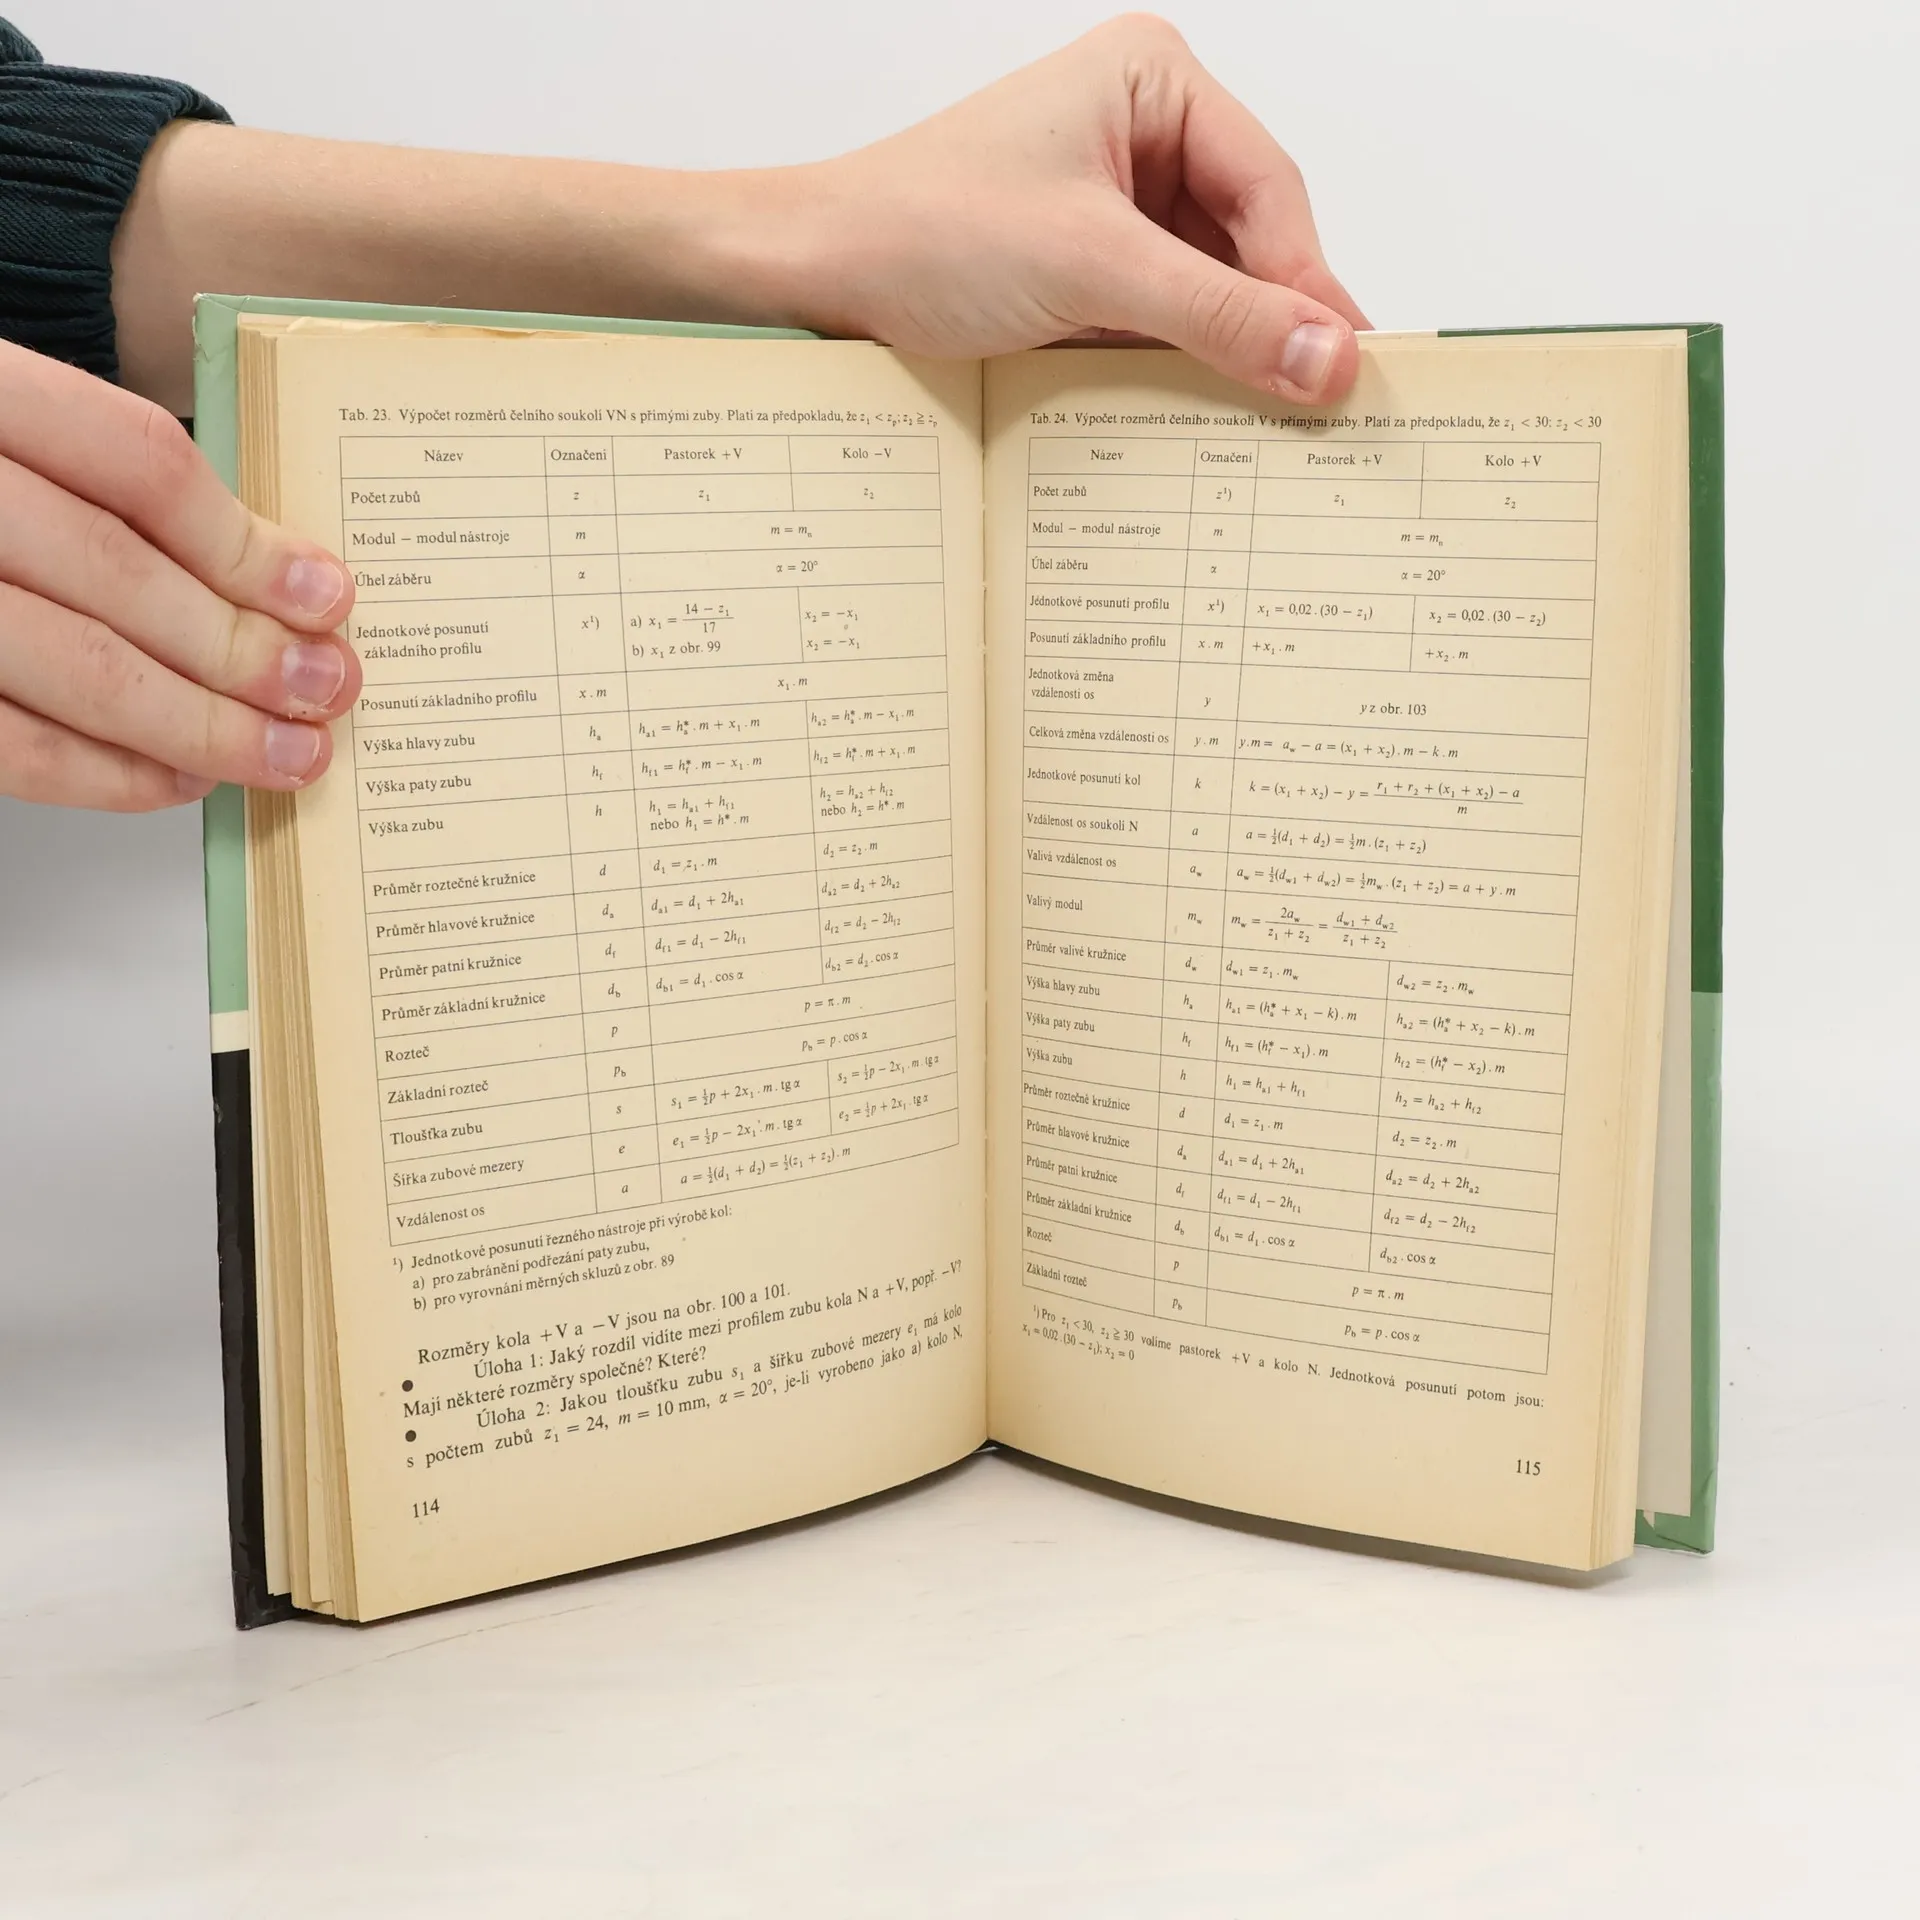 Tab. 23. Výpočet rozměrů čelního soukolí VN s přímými zuby. Platí za předpokladu, že z₁ < zₚ; z₂ ≧ zₚ
Název Označení Pastorek +V Kolo −V
Počet zubů z z₁ z₂
Modul − modul nástroje m m = mₙ
Úhel záběru α α = 20°
Jednotkové posunutí základního profilu x¹) a) x₁ = (14 − z₁)/17 x₂ = −x₁
b) x₁ z obr. 99 x₂ = −x₁
Posunutí základního profilu x . m x₁ . m
Výška hlavy zubu hₐ hₐ₁ = hₐ* . m + x₁ . m hₐ₂ = hₐ* . m − x₁ . m
Výška paty zubu h_f h_f1 = h_f* . m − x₁ . m h_f2 = h_f* . m + x₁ . m
Výška zubu h h₁ = hₐ₁ + h_f1 h₂ = hₐ₂ + h_f2
nebo h₁ = h* . m nebo h₂ = h* . m
Průměr roztečné kružnice d d₁ = z₁ . m d₂ = z₂ . m
Průměr hlavové kružnice dₐ dₐ₁ = d₁ + 2hₐ₁ dₐ₂ = d₂ + 2hₐ₂
Průměr patní kružnice d_f d_f1 = d₁ − 2h_f1 d_f2 = d₂ − 2h_f2
Průměr základní kružnice d_b d_b1 = d₁ . cos α d_b2 = d₂ . cos α
Rozteč p p = π . m
Základní rozteč p_b p_b = p . cos α
Tloušťka zubu s s₁ = ½p + 2x₁ . m . tg α s₂ = ½p − 2x₁ . m . tg α
Šířka zubové mezery e e₁ = ½p − 2x₁ . m . tg α e₂ = ½p + 2x₁ . tg α
Vzdálenost os a a = ½(d₁ + d₂) = ½(z₁ + z₂) . m
¹) Jednotkové posunutí řezného nástroje při výrobě kol:
a) pro zabránění podřezání paty zubu,
b) pro vyrovnání měrných skluzů z obr. 89
Rozměry kola +V a −V jsou na obr. 100 a 101.
● Úloha 1: Jaký rozdíl vidíte mezi profilem zubu kola N a +V, popř. −V?
Mají některé rozměry společné? Které?
● Úloha 2: Jakou tloušťku zubu s₁ a šířku zubové mezery e₁ má kolo
s počtem zubů z₁ = 24, m = 10 mm, α = 20°, je-li vyrobeno jako a) kolo N,
114
Tab. 24. Výpočet rozměrů čelního soukolí V s přímými zuby. Platí za předpokladu, že z₁ < 30; z₂ < 30
Název Označení Pastorek +V Kolo +V
Počet zubů z¹) z₁ z₂
Modul − modul nástroje m m = mₙ
Úhel záběru α α = 20°
Jednotkové posunutí profilu x¹) x₁ = 0,02 . (30 − z₁) x₂ = 0,02 . (30 − z₂)
Posunutí základního profilu x . m +x₁ . m +x₂ . m
Jednotková změna vzdálenosti os y y z obr. 103
Celková změna vzdálenosti os y . m y.m = a_w − a = (x₁ + x₂) . m − k . m
Jednotkové posunutí kol k k = (x₁ + x₂) − y = (r₁ + r₂ + (x₁ + x₂) − a)/m
Vzdálenost os soukolí N a a = ½(d₁ + d₂) = ½m . (z₁ + z₂)
Valivá vzdálenost os a_w a_w = ½(d_w1 + d_w2) = ½m_w . (z₁ + z₂) = a + y . m
Valivý modul m_w m_w = 2a_w/(z₁ + z₂) = (d_w1 + d_w2)/(z₁ + z₂)
Průměr valivé kružnice d_w d_w1 = z₁ . m_w d_w2 = z₂ . m_w
Výška hlavy zubu hₐ hₐ₁ = (hₐ* + x₁ − k) . m hₐ₂ = (hₐ* + x₂ − k) . m
Výška paty zubu h_f h_f1 = (h_f* − x₁) . m h_f2 = (h_f* − x₂) . m
Výška zubu h h₁ = hₐ₁ + h_f1 h₂ = hₐ₂ + h_f2
Průměr roztečné kružnice d d₁ = z₁ . m d₂ = z₂ . m
Průměr hlavové kružnice dₐ dₐ₁ = d₁ + 2hₐ₁ dₐ₂ = d₂ + 2hₐ₂
Průměr patní kružnice d_f d_f1 = d₁ − 2h_f1 d_f2 = d₂ − 2h_f2
Průměr základní kružnice d_b d_b1 = d₁ . cos α d_b2 . cos α
Rozteč p p = π . m
Základní rozteč p_b p_b = p . cos α
¹) Pro z₁ < 30, z₂ ≧ 30 volíme pastorek +V a kolo N. Jednotková posunutí potom jsou:
x₁ = 0,02 . (30 − z₁); x₂ = 0
115